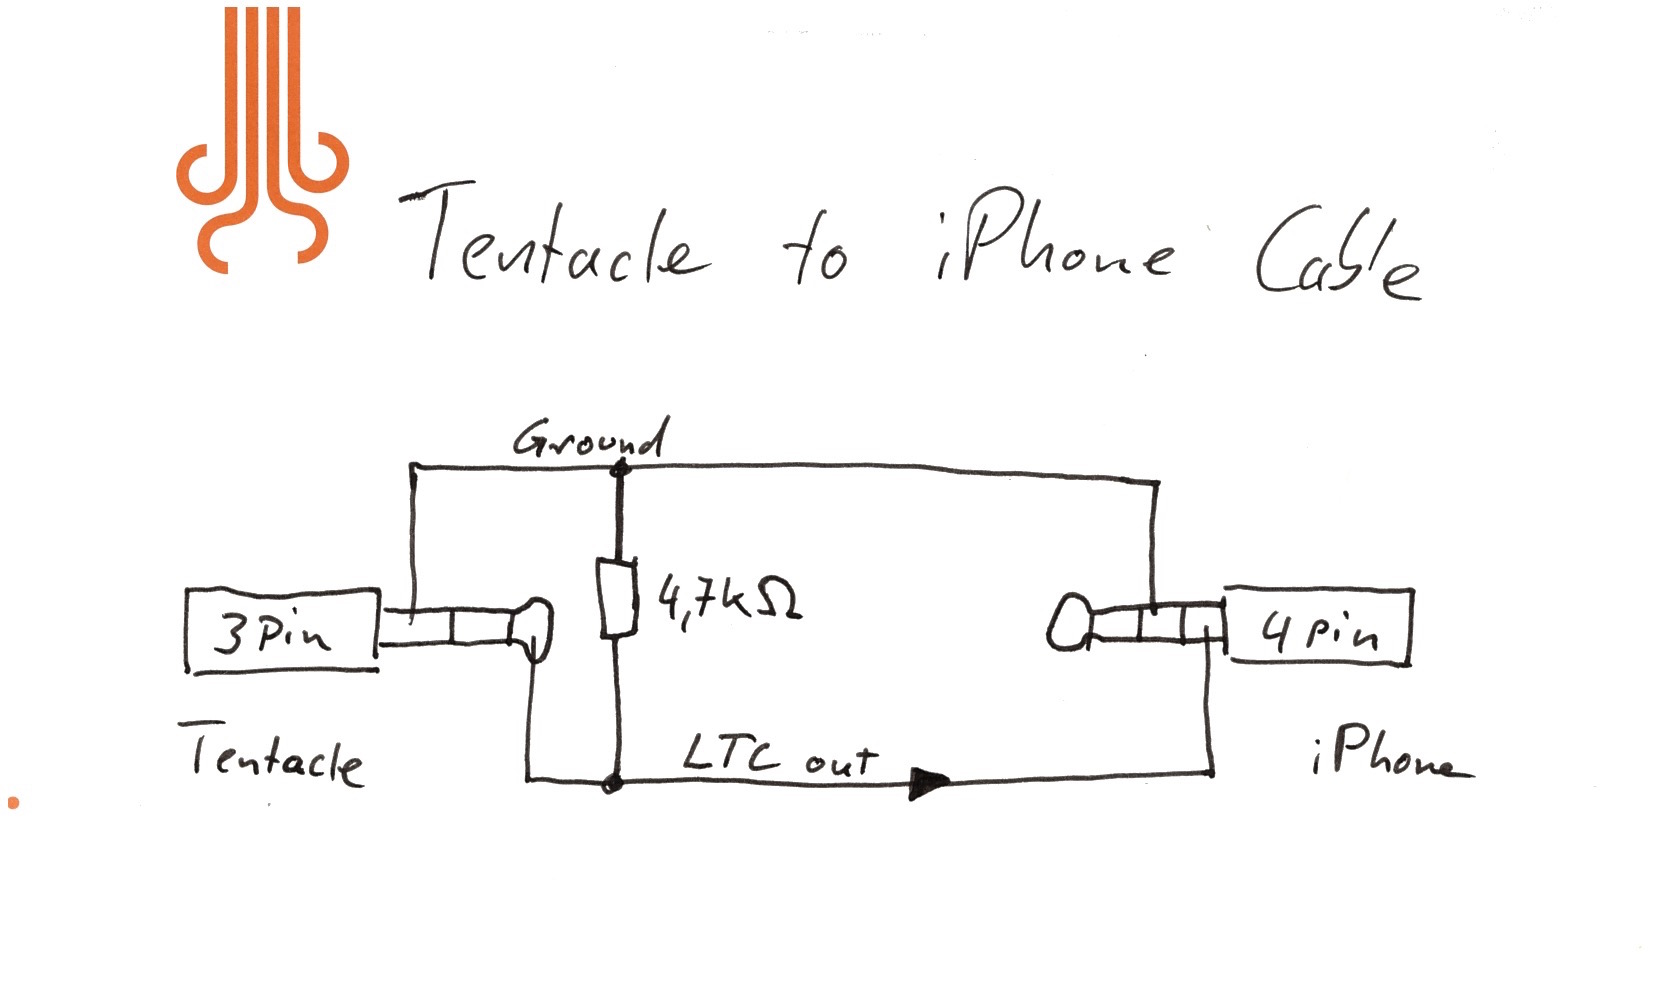 Tentacle to iPhone Cable
Ground
4,7kΩ
3 Pin
4 pin
Tentacle
LTC out
iPhone